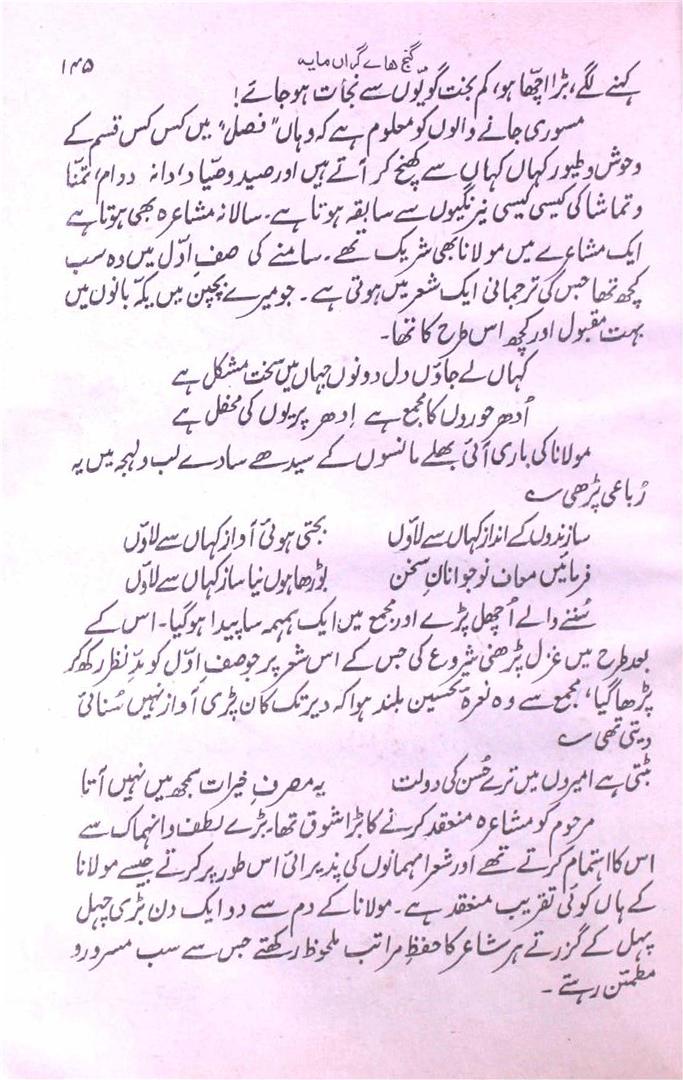 گنج ہائے گراں مایہ ۱۴۵
کہنے لگے، بڑا اچھا ہو، کم بخت گویّوں سے نجات ہو جائے!
مسوری جانے والوں کو معلوم ہے کہ وہاں ”فصل“ میں کس کس قسم کے
وحوش و طیور کہاں کہاں سے کھنچ کر آتے ہیں اور صید و صیّاد، دانہ و دام، تمنّا
و تماشا کی کیسی کیسی نیرنگیوں سے سابقہ ہوتا ہے۔ سالانہ مشاعرہ بھی ہوتا ہے
ایک مشاعرے میں مولانا بھی شریک تھے۔ سامنے کی صف اوّل میں وہ سب
کچھ تھا جس کی ترجمانی ایک شعر میں ہوتی ہے۔ جو میرے بچپن میں یکّہ بانوں میں
بہت مقبول اور کچھ اس طرح کا تھا۔
کہاں لے جاؤں دل دونوں جہاں میں سخت مشکل ہے
اُدھر حوروں کا مجمع ہے اِدھر پریوں کی محفل ہے
مولانا کی باری آئی بھلے مانسوں کے سیدھے سادے لب و لہجہ میں یہ
رُباعی پڑھی ؎
سازندوں کے انداز کہاں سے لاؤں بجتی ہوئی آواز کہاں سے لاؤں
فرمائیں معاف نوجوانانِ سخن بوڑھا ہوں نیا ساز کہاں سے لاؤں
سُننے والے اُچھل پڑے اور مجمع میں ایک ہمہمہ سا پیدا ہو گیا۔ اس کے
بعد طرح میں غزل پڑھنی شروع کی جس کے اس شعر پر جو صفِ اوّل کو مدِّ نظر رکھ کر
پڑھا گیا، مجمع سے وہ نعرۂ تحسین بلند ہوا کہ دیر تک کان پڑی آواز نہیں سُنائی
دیتی تھی ؎
بٹتی ہے امیروں میں ترے حُسن کی دولت یہ مصرفِ خیرات سمجھ میں نہیں آتا
مرحوم کو مشاعرہ منعقد کرنے کا بڑا شوق تھا۔ بڑے لطف و انہماک سے
اس کا اہتمام کرتے تھے اور شعرا مہمانوں کی پذیرائی اس طور پر کرتے جیسے مولانا
کے ہاں کوئی تقریب منعقد ہے۔ مولانا کے دم سے دو ایک دن بڑی چہل
پہل کے گزرتے ہر شاعر کا حفظِ مراتب ملحوظ رکھتے جس سے سب مسرور و
مطمئن رہتے۔